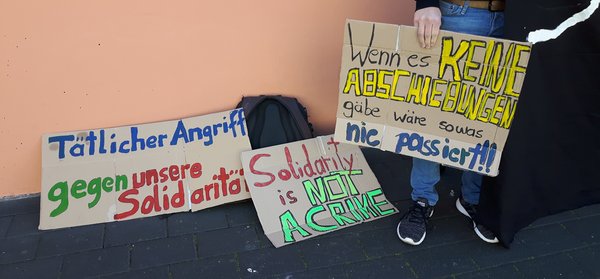 Tätlicher Angriff
gegen unsere
Solidarität
Solidarity
is NOT
A CRIME
Wenn es KEINE
ABSCHIEBUNGEN
gäbe wäre sowas
nie passiert!!!